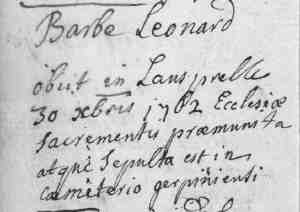 Barbe Leonard
obiit in Lausprelle
30 xbris 1762 Ecclesiæ
sacrementis præmunita
atque sepulta est in
cæmeterio gerpinienti